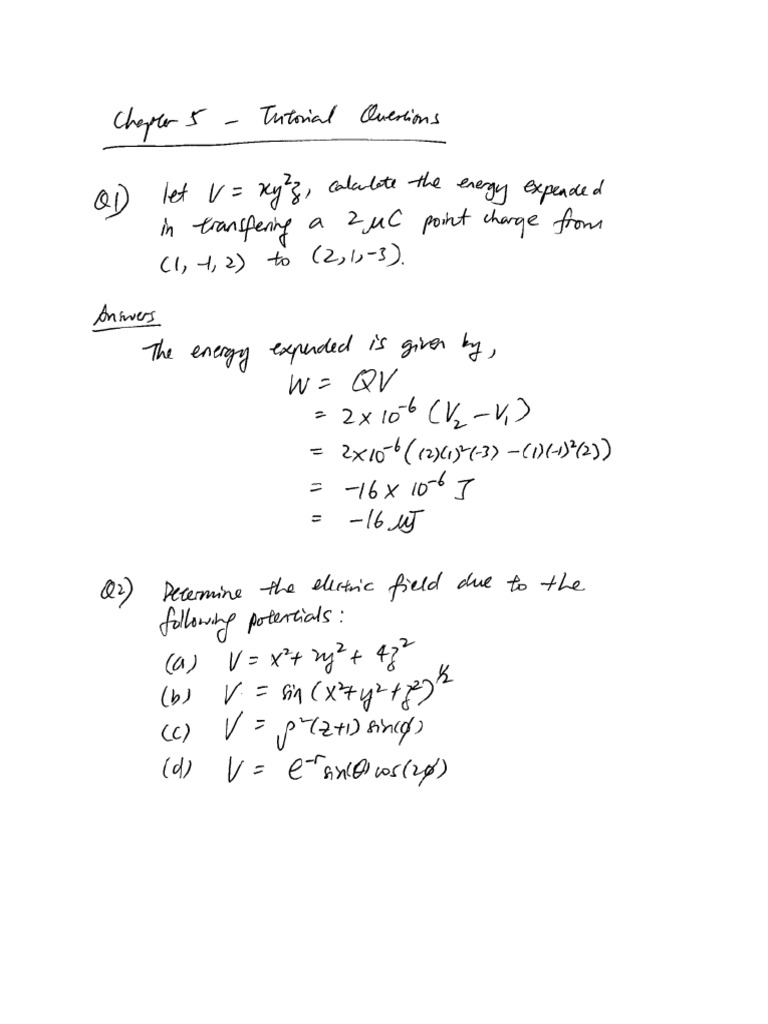 Chapter 5 - Tutorial Questions
Q1) let V = xy²z, calculate the energy expended
in transfering a 2μC point charge from
(1, -1, 2) to (2, 1, -3).
Answers
The energy expended is given by,
W = QV
= 2 × 10⁻⁶ (V₂ - V₁)
= 2×10⁻⁶ ((2)(1)²(-3) - (1)(-1)²(2))
= -16 × 10⁻⁶ J
= -16 μJ
Q2) Determine the electric field due to the
following potentials:
(a) V = x² + 2y² + 4z²
(b) V = sin (x² + y² + z²)^½
(c) V = ρ²(z+1) sin(φ)
(d) V = e⁻ʳ sin(θ) cos(2φ)